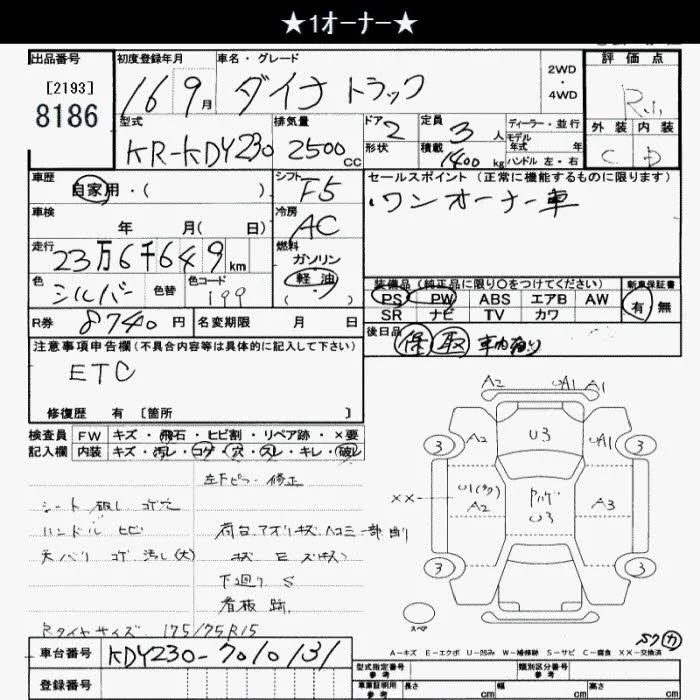 ★1オーナー★
出品番号 初度登録年月 車名・グレード 評価点
[2193]
8186
16 9月 ダイナ トラック 2WD・4WD R.1
型式 排気量 ドア 2 定員 3人 ディーラー・並行 外装 内装
KR-KDY230 2500cc 形状 積載 1400kg モデル年式 年 C D
ハンドル 左・右
車歴 自家用・( ) シフト F5 セールスポイント(正常に機能するものに限ります)
車検 年 月( 日) 冷房 AC ワンオーナー車
走行 23万6千649km 燃料 ガソリン
軽油
( )
色 シルバー 色替 色コード 199 装備品(純正品に限り○をつけてください) 新車保証書
PS PW ABS エアB AW 有 無
SR ナビ TV カワ
R券 8740円 名変期限 月 日 後日品 保 取
注意事項申告欄(不具合内容等は具体的に記入して下さい)
ETC
修復歴 有 [箇所 ]
検査員 FW キズ・飛石・ヒビ割・リペア跡・×要
記入欄 内装 キズ・汚レ・コゲ・穴・スレ・キレ・破レ
左下ピラー 修正
シート 破レ コゲ穴
ハンドル ヒビ 荷台、アオリ キズ ヘコミ 一部 削リ
天バリ コゲ 汚レ(大)
下廻り S
看板 跡
Rタイヤサイズ 175/75R15
A2 UA1 A1
3 A2 U3 UA1 3
XX U1 A2 U3 A3
3 3
スペア
A-キズ E-エクボ U-凹み W-補修跡 S-サビ C-腐食 XX-交換済
車台番号 KDY230-7010131
登録番号
型式指定番号 参考 類別区分番号 参考
車庫証明用 参考 長さ cm 幅 cm 高さ cm